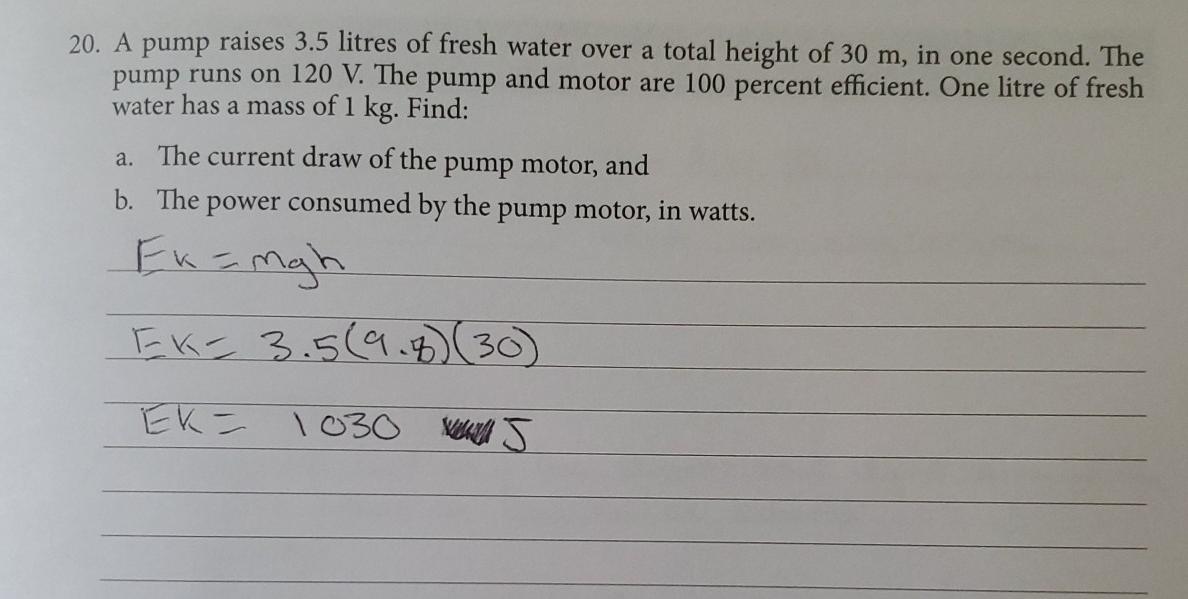 20. A pump raises 3.5 litres of fresh water over a total height of 30 m, in one second. The
pump runs on 120 V. The pump and motor are 100 percent efficient. One litre of fresh
water has a mass of 1 kg. Find:
a. The current draw of the pump motor, and
b. The power consumed by the pump motor, in watts.
Ek = mgh
EK = 3.5(9.8)(30)
EK = 1030 J